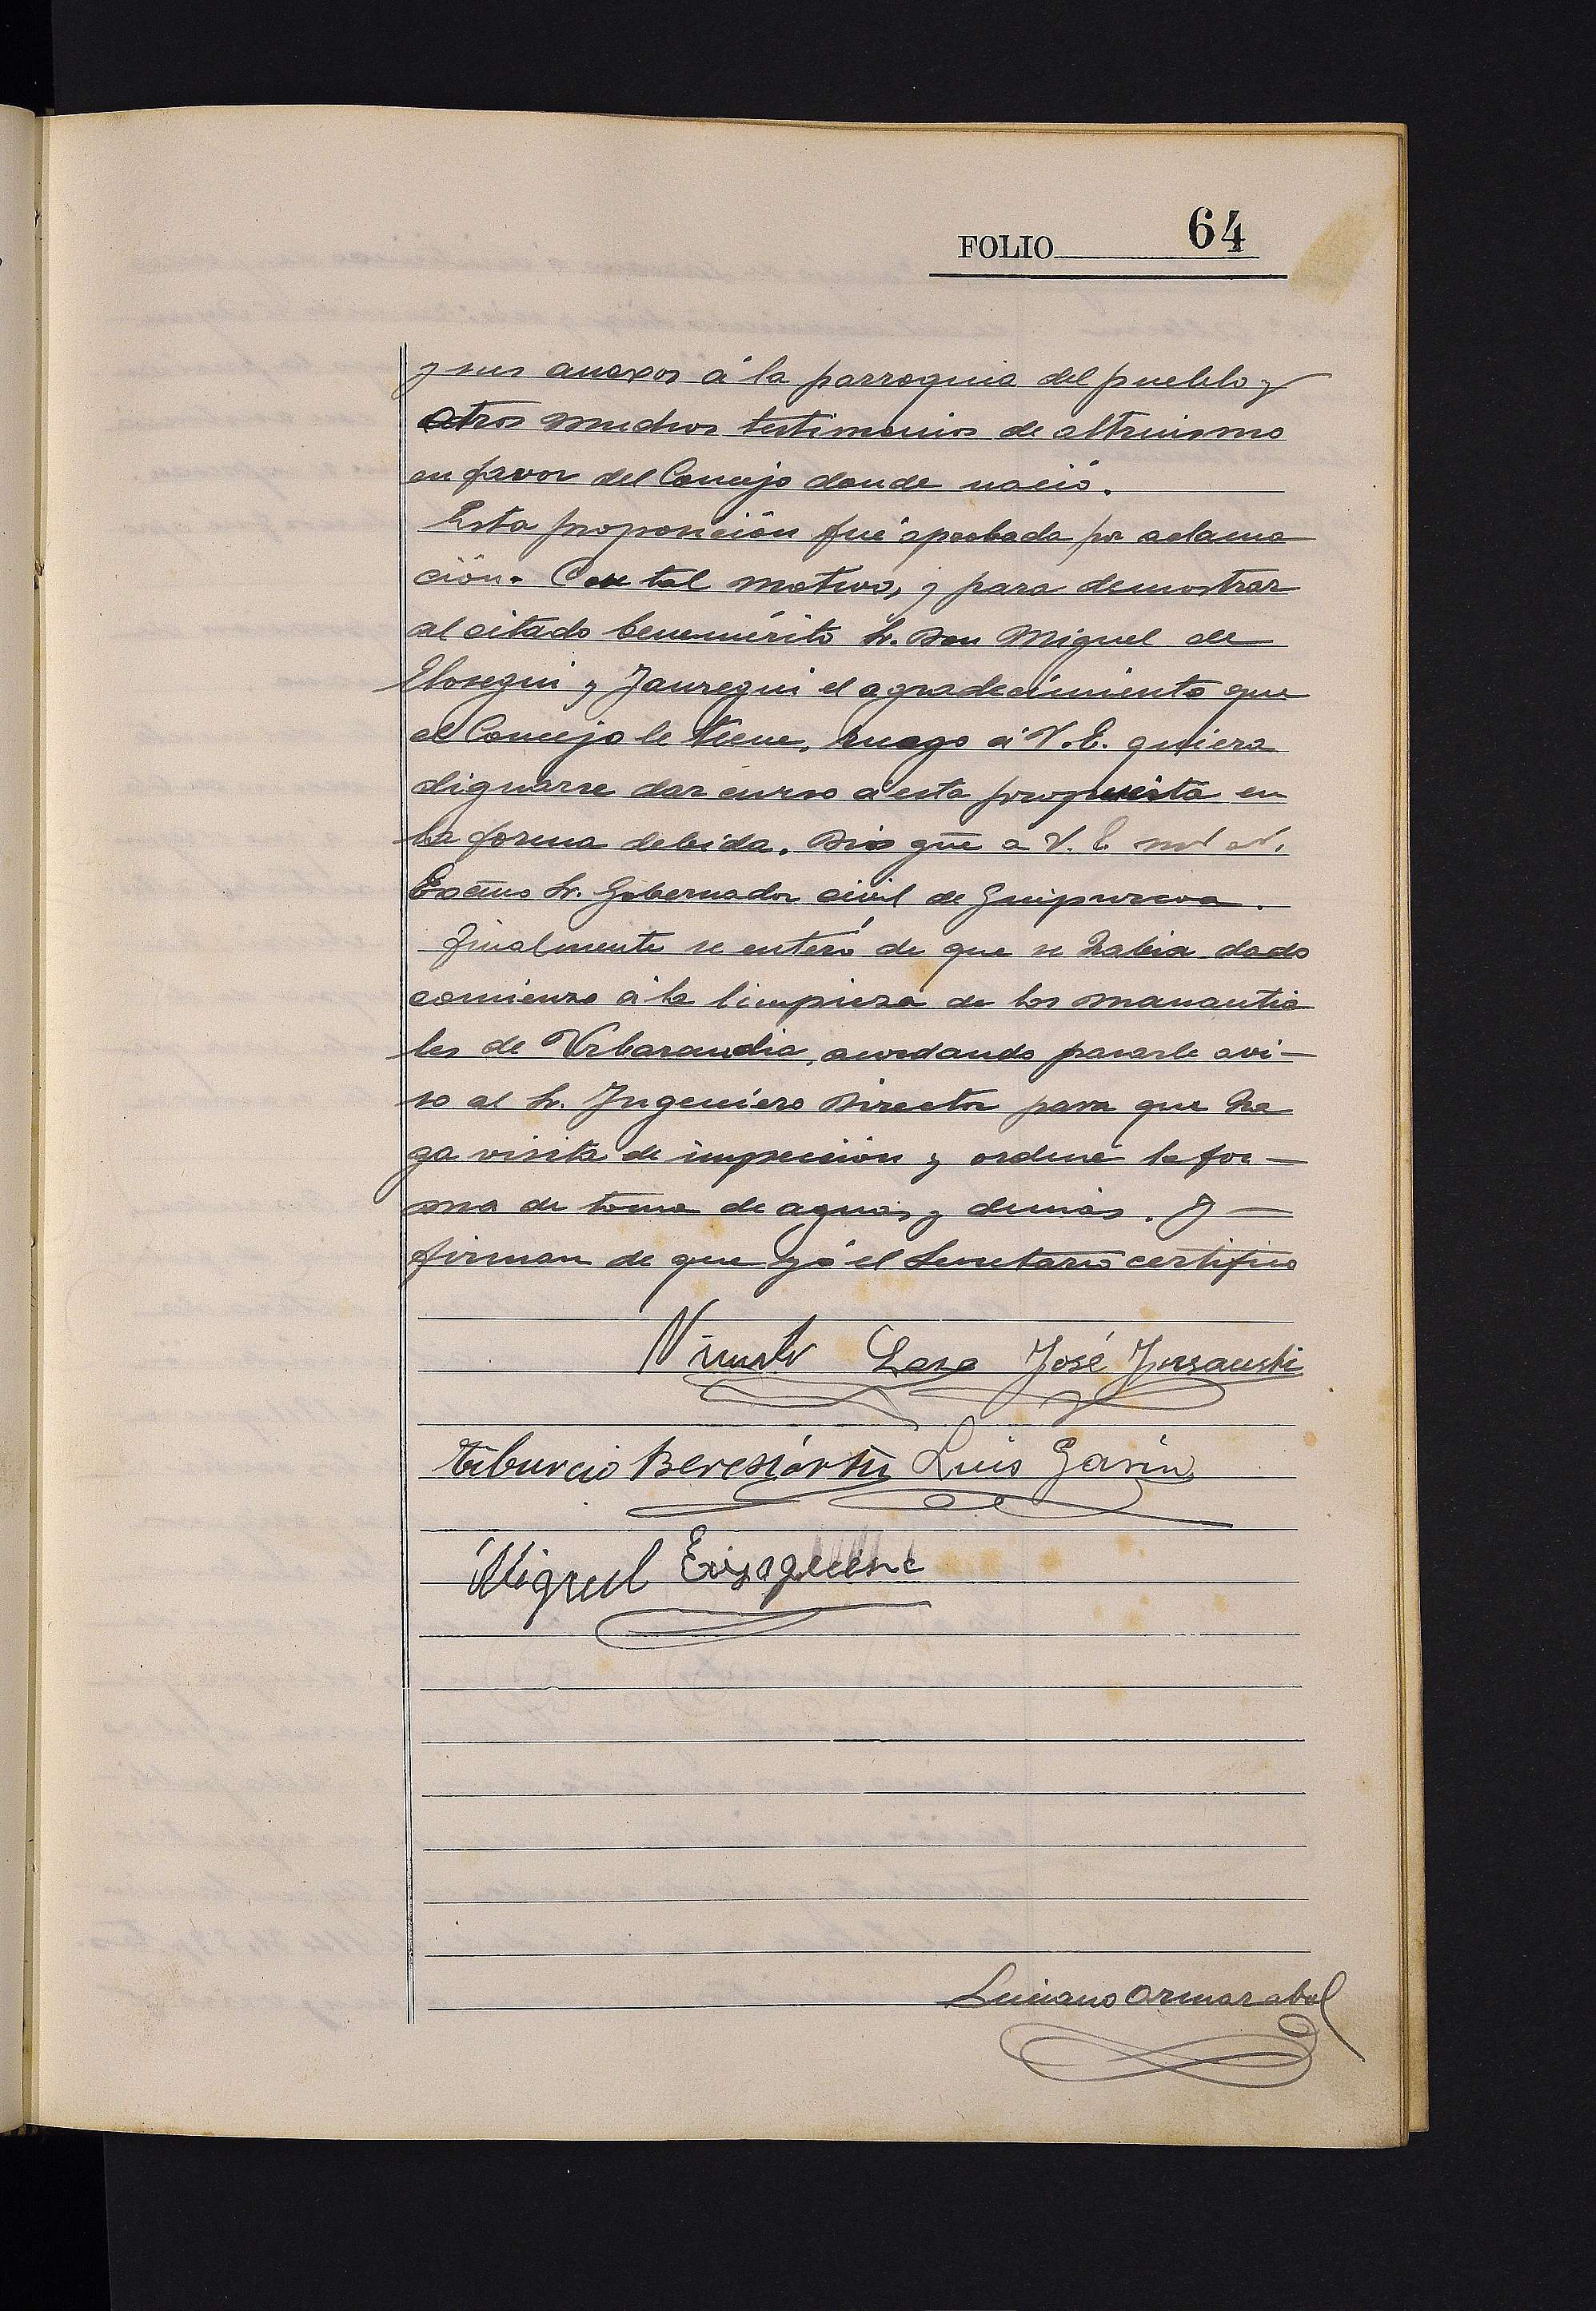 FOLIO 64
y sus anexos á la parroquia del pueblo y
otros muchos testimonios de altruismo
en favor del Concejo donde nació.
Esta proposición fué aprobada por aclama
ción. Con tal motivo, y para demostrar
al citado benemérito Sr. Don Miguel de
Elosegui y Jauregui el agradecimiento que
el Concejo le tiene, ruego á V. E. quiera
dignarse dar curso á esta propuesta en
la forma debida. Dios gūe a V. E. ms as.
Excmo Sr. Gobernador civil de Guipuzcoa.
Finalmente se enteró de que se habia dado
comienzo á la limpieza de los manantia
les de Urbarandia, acordando pasarle avi-
so al Sr. Ingeniero Director para que ha
ga visita de inspección y ordene la for-
ma de toma de aguas y demás. Y
firman de que yó el Secretario certifico
Lasa José Jnsausti
Tiburcio Beresiartu Luis Garin
Miguel
Luciano Ormazabal